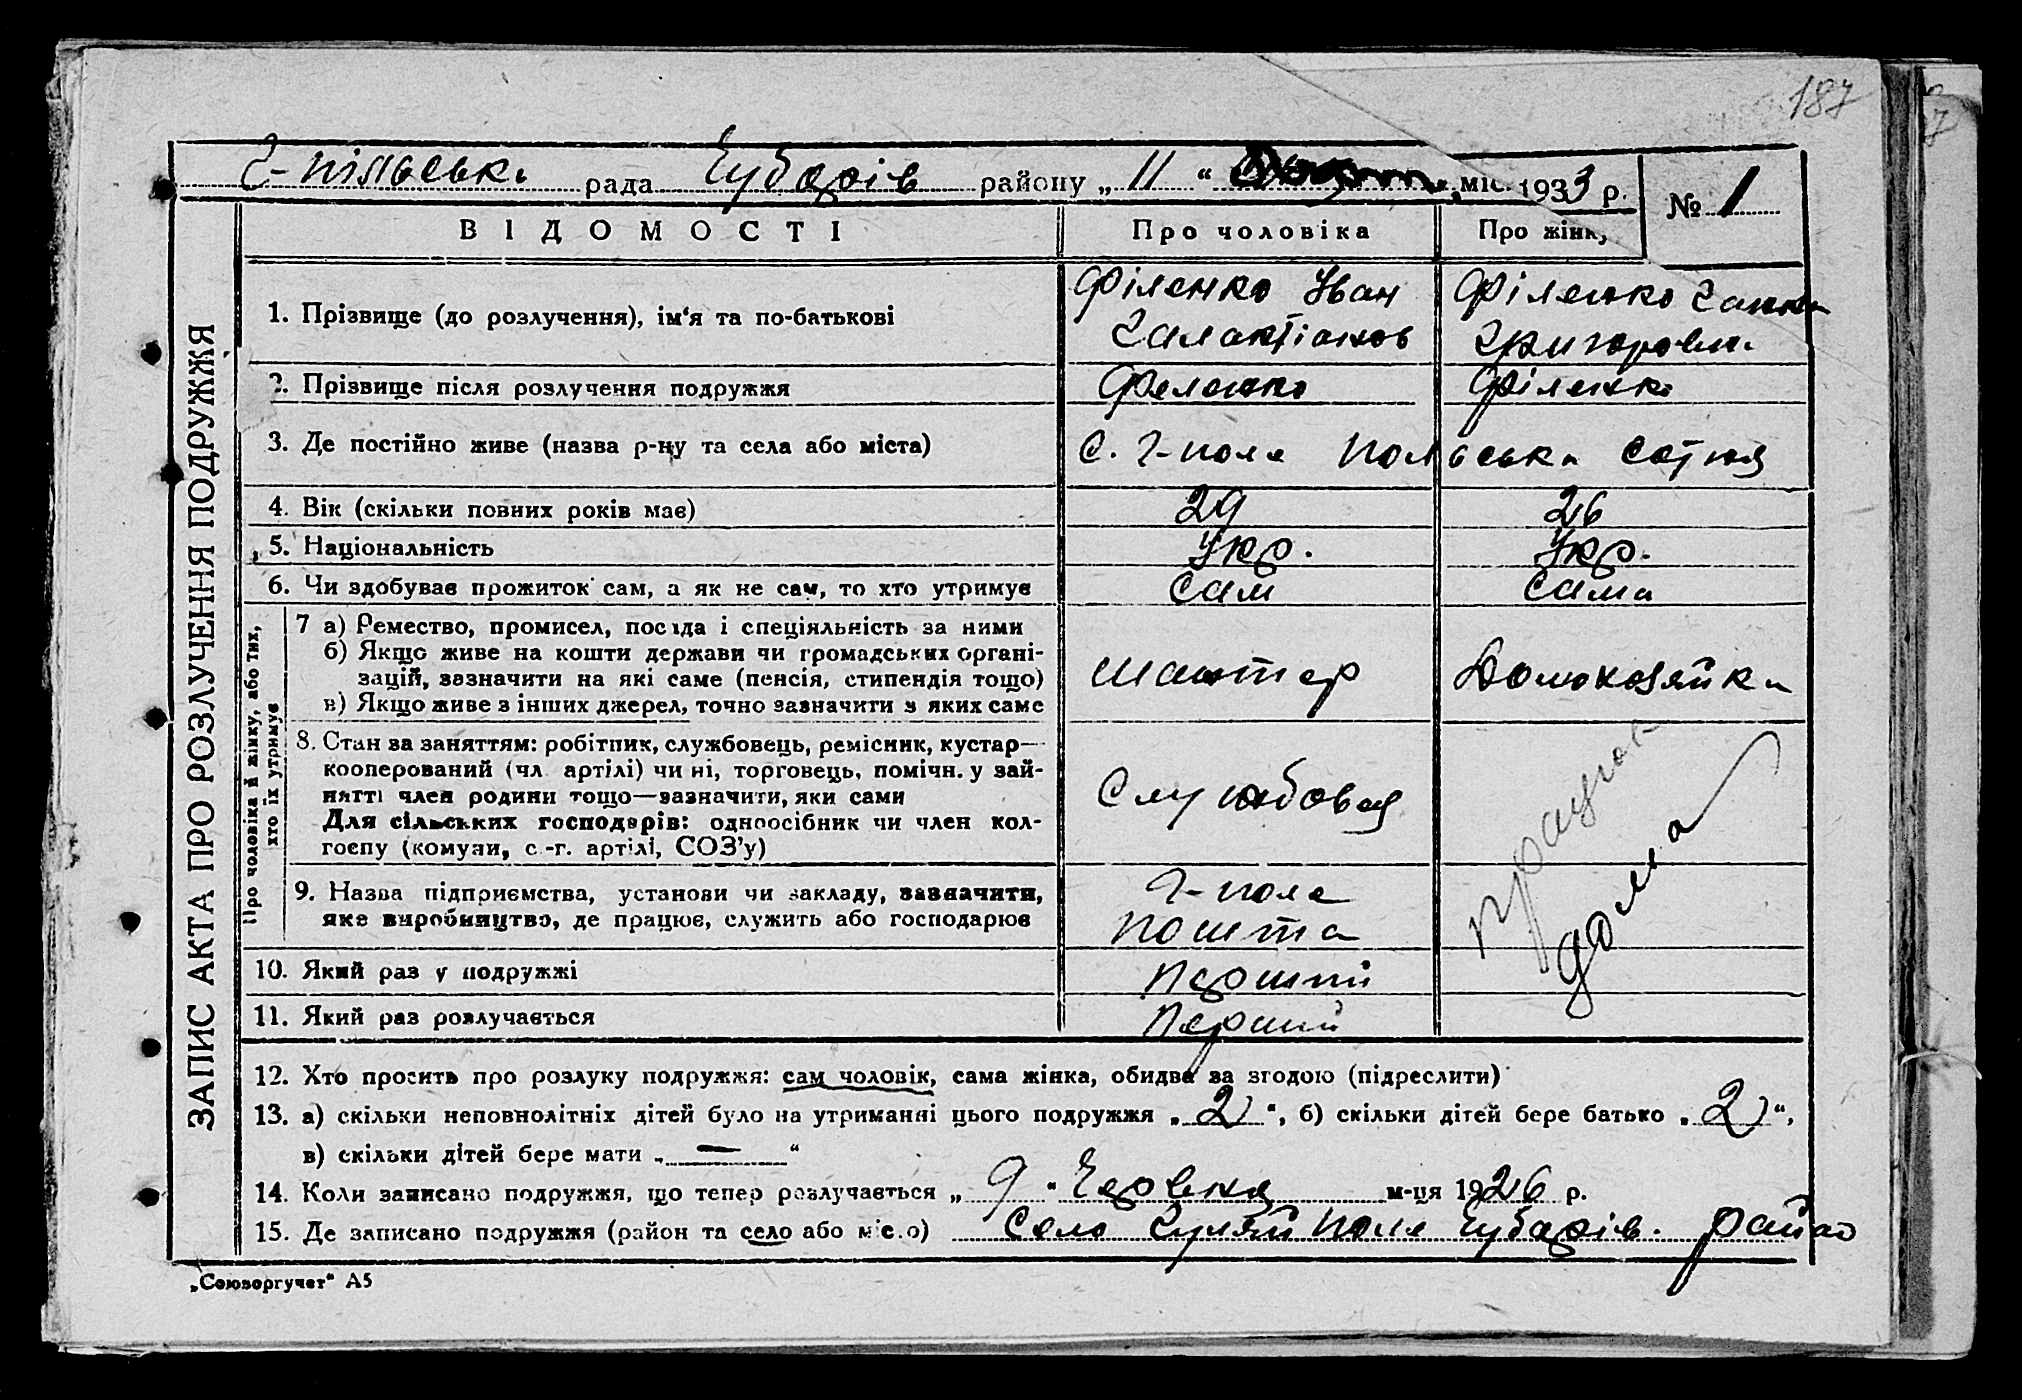 187
Г-пільськ. рада Чубарів району „ 11 “ міс. 1933 р. № 1
ЗАПИС АКТА ПРО РОЗЛУЧЕННЯ ПОДРУЖЖЯ
ВІДОМОСТІ Про чоловіка Про жінку
1. Прізвище (до розлучення), ім'я та по-батькові
Філенко Іван Філенко Ганна
Галактіонов Григоровна
2. Прізвище після розлучення подружжя Філенко Філенко
3. Де постійно живе (назва р-ну та села або міста) С. Г-поле Польська сотня
4. Вік (скільки повних років має) 29 26
5. Національність Укр. Укр.
6. Чи здобуває прожиток сам, а як не сам, то хто утримує сам сама
Про чоловіка й жінку, або тих, хто їх утримує
7 а) Ремество, промисел, посада і спеціяльність за ними
б) Якщо живе на кошти держави чи громадських органі-
зацій, зазначити на які саме (пенсія, стипендія тощо) Домохозяйка
в) Якщо живе з інших джерел, точно зазначити з яких саме
8. Стан за заняттям: робітник, службовець, ремісник, кустар—
кооперований (чл. артілі) чи ні, торговець, помічн. у зай-
нятті член родини тощо—зазначити, яки сами Службовец
Для сільських господарів: одноосібник чи член кол-
госпу (комуни, с.-г. артілі, СОЗ'у)
працює
дома
9. Назва підприємства, установи чи закладу, зазначити, Г-поле
яке виробництво, де працює, служить або господарює пошта
10. Який раз у подружжі Перший
11. Який раз розлучається Перший
12. Хто просить про розлуку подружжя: сам чоловік, сама жінка, обидва за згодою (підреслити)
13. а) скільки неповнолітніх дітей було на утриманні цього подружжя „ 2 “, б) скільки дітей бере батько „ 2 “,
в) скільки дітей бере мати „ — “
14. Коли записано подружжя, що тепер розлучається „ 9 “ Червня м-ця 1926 р.
15. Де записано подружжя (район та село або місто) Село Гуляй Поле Чубарів. району
„Союзоргучет“ А5